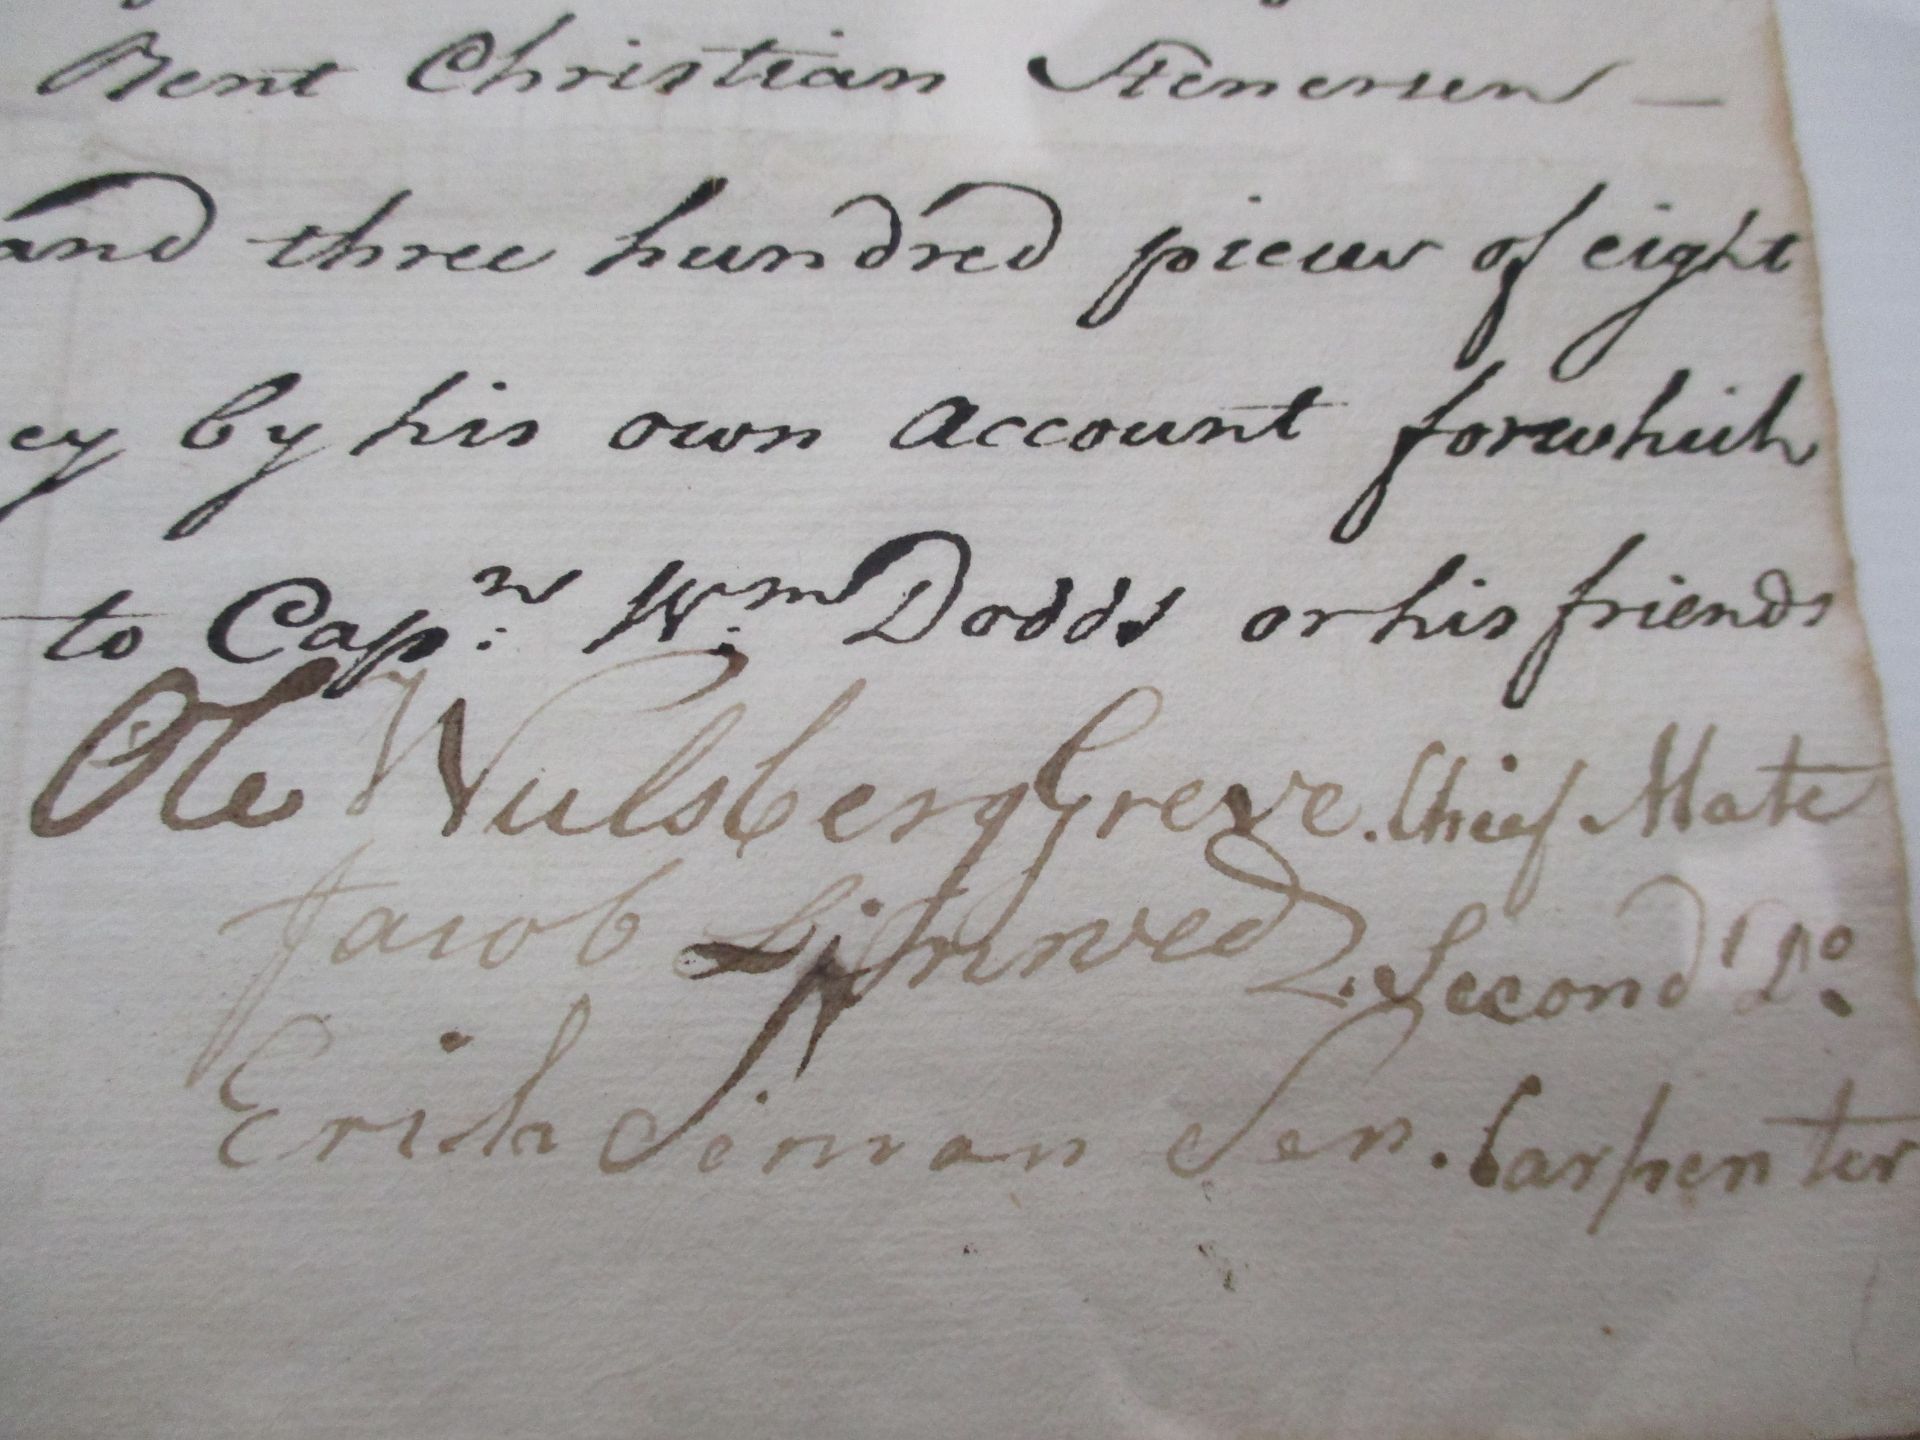 Bent Christian Stenersen —
and three hundred pieces of eight
ey by his own account forwhich
to Cap:n W:m Dodds or his friends
Ole Wulsberg Greve. Chief Mate
Jacob Second Do.
Erich Siman Sen. Carpenter